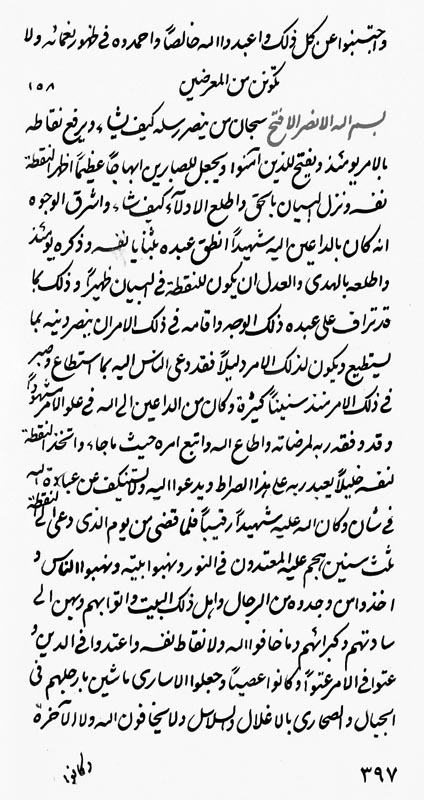 واجتنبوا عن كل ذلك واعبدوا الله خالصاً واحمدوه في ظهور نعمائه ولا
تكونن من المعرضين
١٥٨
بسم الله الانصر الافتح سبحان من ينصر رسله كيف يشاء ويرفع نقاطه
بالامر يومئذ ويفتح للذين آمنوا ويجعل للصابرين ابهاجاً عظيماً اظهر النقطة
نفسه ونزل البيان بالحق واطلع الادلاء كيف شاء واشرق الوجوه
انه كان بالداعين اليه شهيداً انطق عبده بثنايا نفسه وذكره يومئذ
واطلعه بالهدى والعدل ان يكون للنقطة في البيان ظهيراً وذلك بما
قد تراف على عبده ذلك الوجه واقامه في ذلك الامر ان ينصر دينه بما
يستطيع ويكون لذلك الامر دليلاً فقد دعى الناس اليه بما استطاع وصبر
في ذلك الامر منذ سنيناً كثيرة وكان من الداعين الى الله في علو الامر مشهوداً
وقد وفقه ربه لمرضاته واطاع الله واتبع امره حيث ما جاء واتخذ النقطة
لنفسه خليلاً يعبد ربه على هذا الصراط ويدعوا اليه ولا يستنكف عن عبادة الله
في شأن وكان الله عليه شهيداً رقيباً فلما قضى من يوم الذي دعى الى النقطة
ثلث سنين هجم عليه المعتدون في النور ونهبوا بيته ونهبوا الناس و
اخذوا من وجدوه من الرجال واهل ذلك البيت واتوا بهم وبهن الى
ساداتهم وكبرائهم وما خافوا الله ولا نقاط نفسه واعتدوا في الدين و
عتوا في الامر عتواً وكانوا عصيباً وجعلوا الاسارى ماشين بارجلهم في
الجبال والصحارى بالاغلال والسلاسل ولا يخافون الله ولا الآخرة
وكانوا
٣٩٧